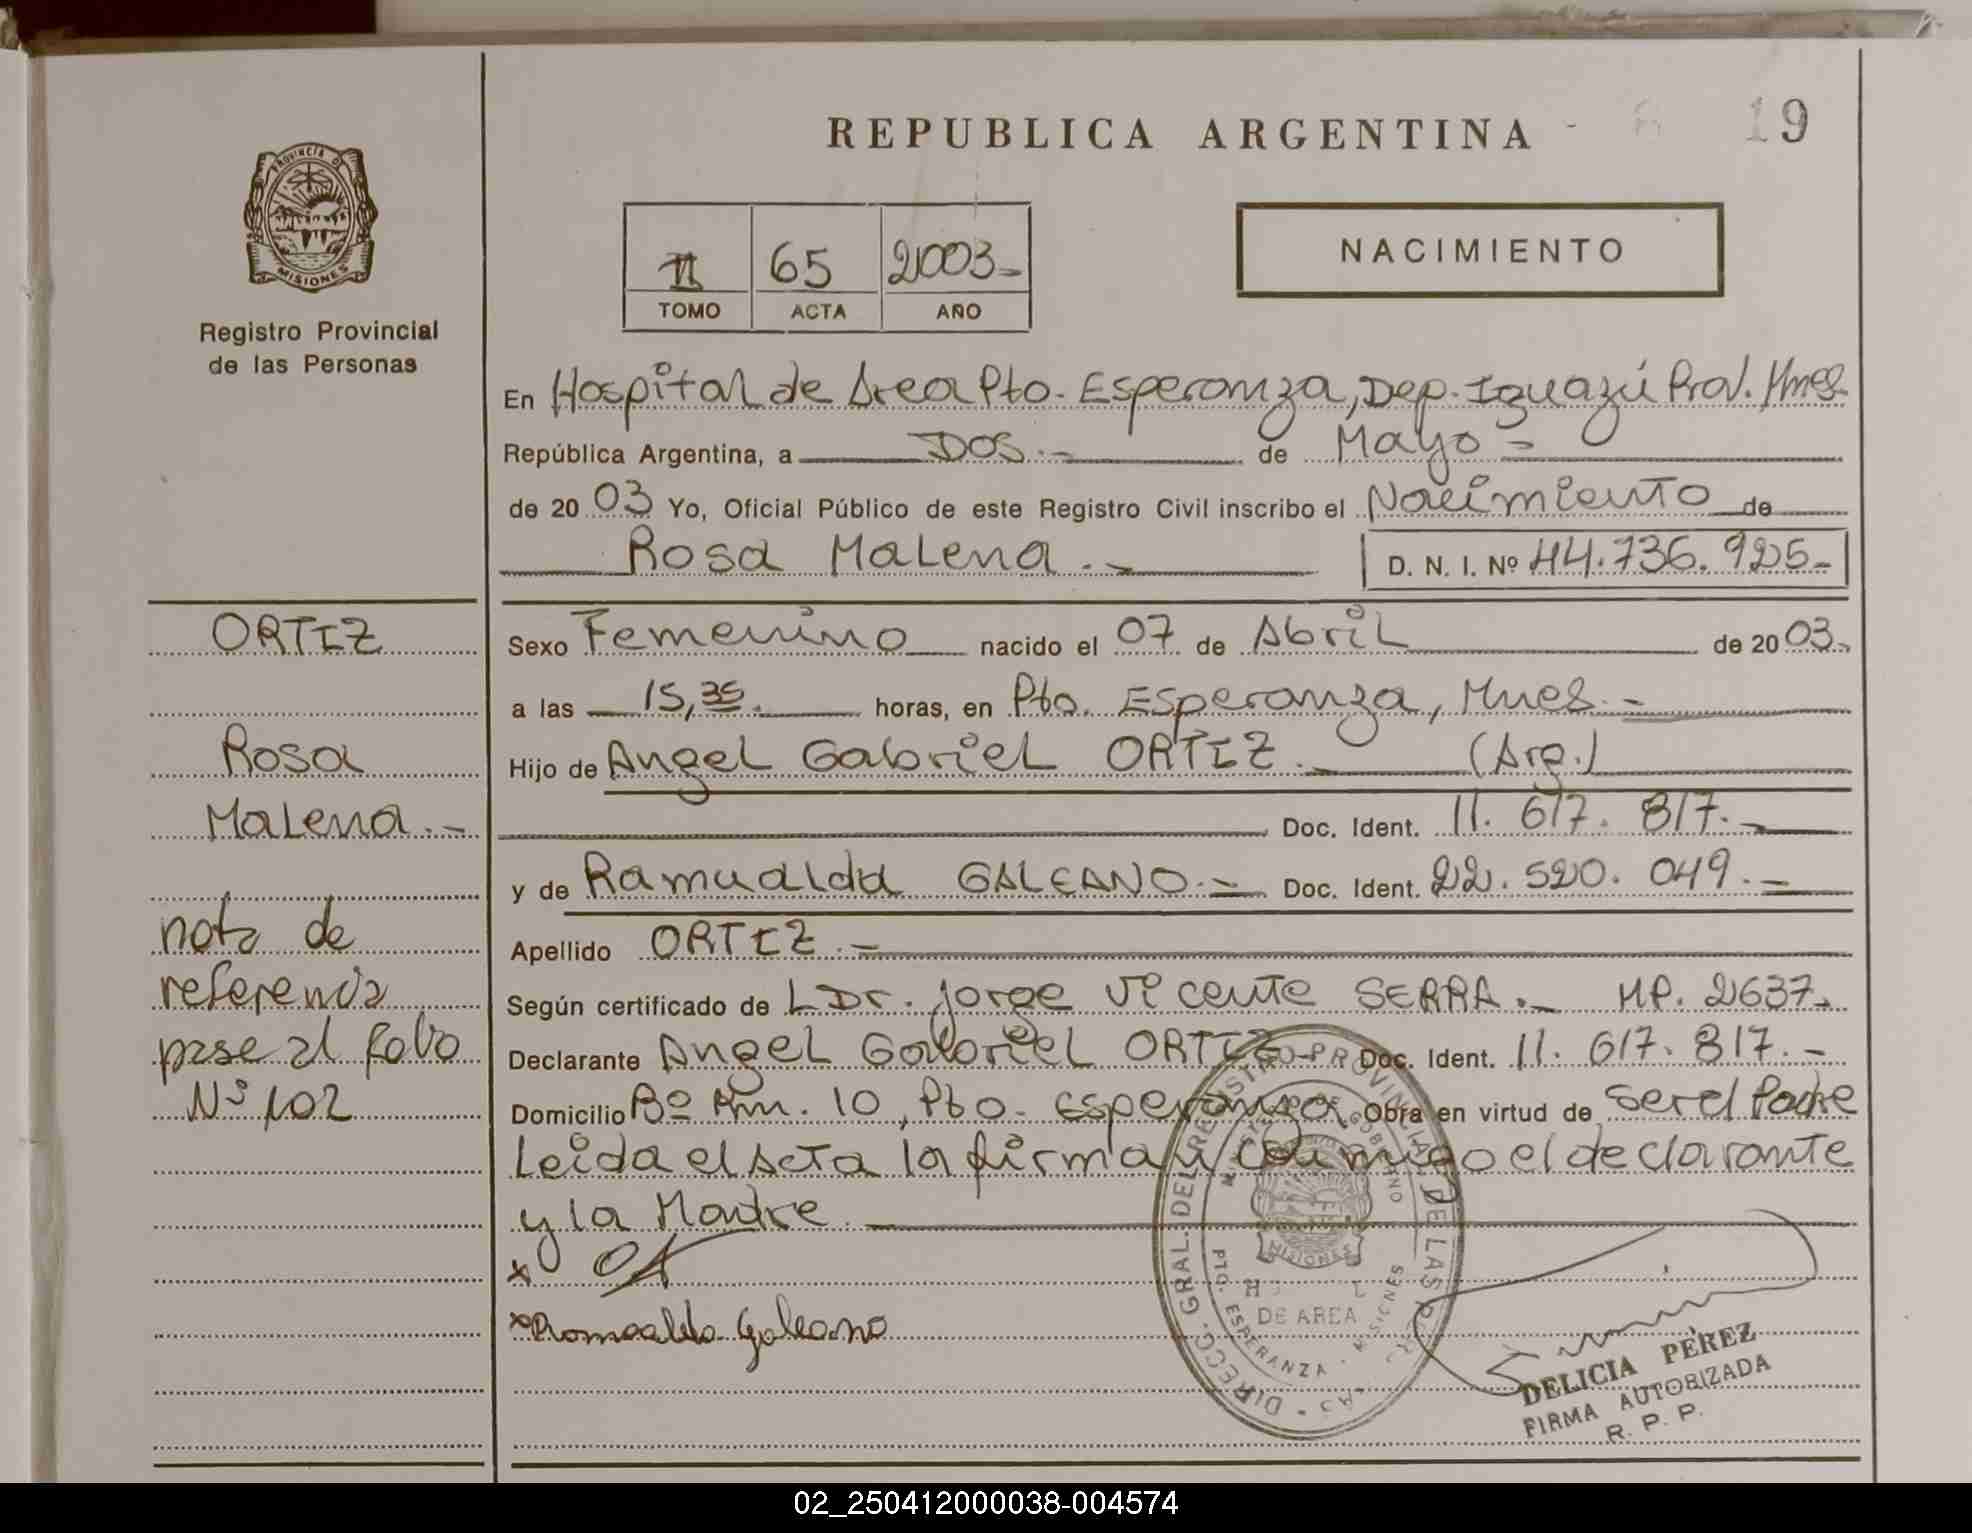 REPUBLICA ARGENTINA
19
PROVINCIA DE
MISIONES
Registro Provincial
de las Personas
II 65 2003-
TOMO ACTA AÑO
NACIMIENTO
En Hospital de Area Pto. Esperanza, Dep. Iguazú Prov. Mnes
República Argentina, a DOS.- de Mayo -
de 2003 Yo, Oficial Público de este Registro Civil inscribo el Nacimiento de
Rosa Malena.-
D. N. I. Nº 44.736.925-
ORTIZ
Rosa
Malena.-
nota de
referencia
pase al folio
Nº 102
Sexo Femenino nacido el 07 de Abril de 2003.
a las 15,35. horas, en Pto. Esperanza, Mnes.-
Hijo de Angel Gabriel ORTIZ.- (Arg.)
Doc. Ident. 11.617.817.-
y de Ramualda GALEANO.- Doc. Ident. 22.520.049.-
Apellido ORTIZ.-
Según certificado de L Dr. Jorge Vicente SERRA.- MP. 2637.
Declarante Angel Gabriel ORTIZ- Doc. Ident. 11.617.817.-
Domicilio Bº Km. 10, Pto. Esperanza, Obra en virtud de ser el Padre
Leida el Acta la firman conmigo el declarante
y la Madre
x
x Romualda Galeano
DIRECC. GRAL. DEL REGISTRO PROVINCIAL DE LAS
MISIONES
DE AREA
PTO. ESPERANZA - MISIONES
DELICIA PÉREZ
FIRMA AUTORIZADA
R. P. P.
02_250412000038-004574